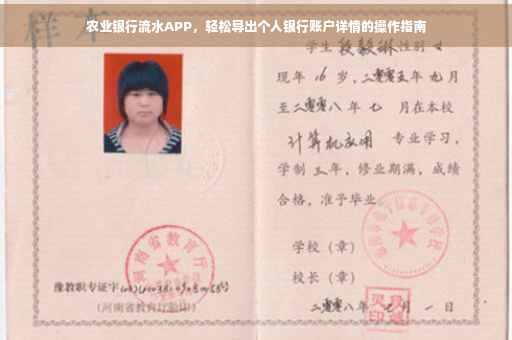 农业银行流水APP，轻松导出个人银行账户详情的操作指南
样本
学生段毅琳性别女
现年 16 岁，二零零五年九月
至二零零八年七 月在本校
计算机应用 专业学习，
学制三年，修业期满，成绩
合格，准予毕业
学校（章）
校长（章）
二零零八年七月一日
河南省教育厅
豫教职专证字
（河南省教育厅验印）